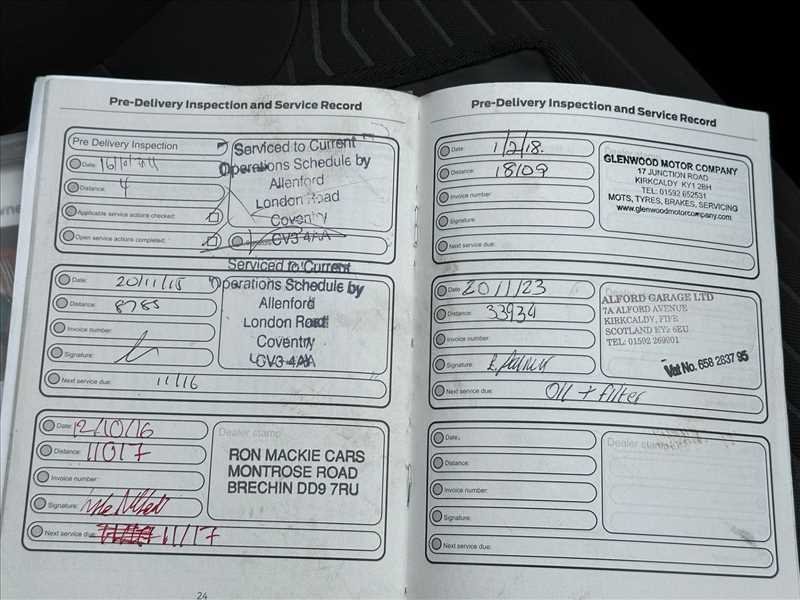 Pre-Delivery Inspection and Service Record
Pre Delivery Inspection
Date:
Distance: 4
Applicable service actions checked:
Open service actions completed:
Serviced to Current
Operations Schedule by
Allenford
London Road
Coventry
CV3 4AA
Date: 20/11/15
Distance: 8785
Invoice number:
Signature:
Next service due: 11/16
Serviced to Current
Operations Schedule by
Allenford
London Road
Coventry
CV3 4AA
Date: 12/10/16
Distance: 11017
Invoice number:
Signature:
Next service due: 11/17
Dealer stamp
RON MACKIE CARS
MONTROSE ROAD
BRECHIN DD9 7RU
24
Pre-Delivery Inspection and Service Record
Date: 1/2/18.
Distance: 18109
Invoice number:
Signature:
Next service due:
Dealer stamp
GLENWOOD MOTOR COMPANY
17 JUNCTION ROAD
KIRKCALDY KY1 2BH
TEL: 01592 652531
MOTS, TYRES, BRAKES, SERVICING
www.glenwoodmotorcompany.com
Date: 20/11/23
Distance: 33934
Invoice number:
Signature:
Next service due: Oil + filter
Dealer
ALFORD GARAGE LTD
7A ALFORD AVENUE
KIRKCALDY, FIFE
SCOTLAND KY2 6EU
TEL: 01592 269901
Vat No. 658 2637 95
Date:
Distance:
Invoice number:
Signature:
Next service due:
Dealer stamp